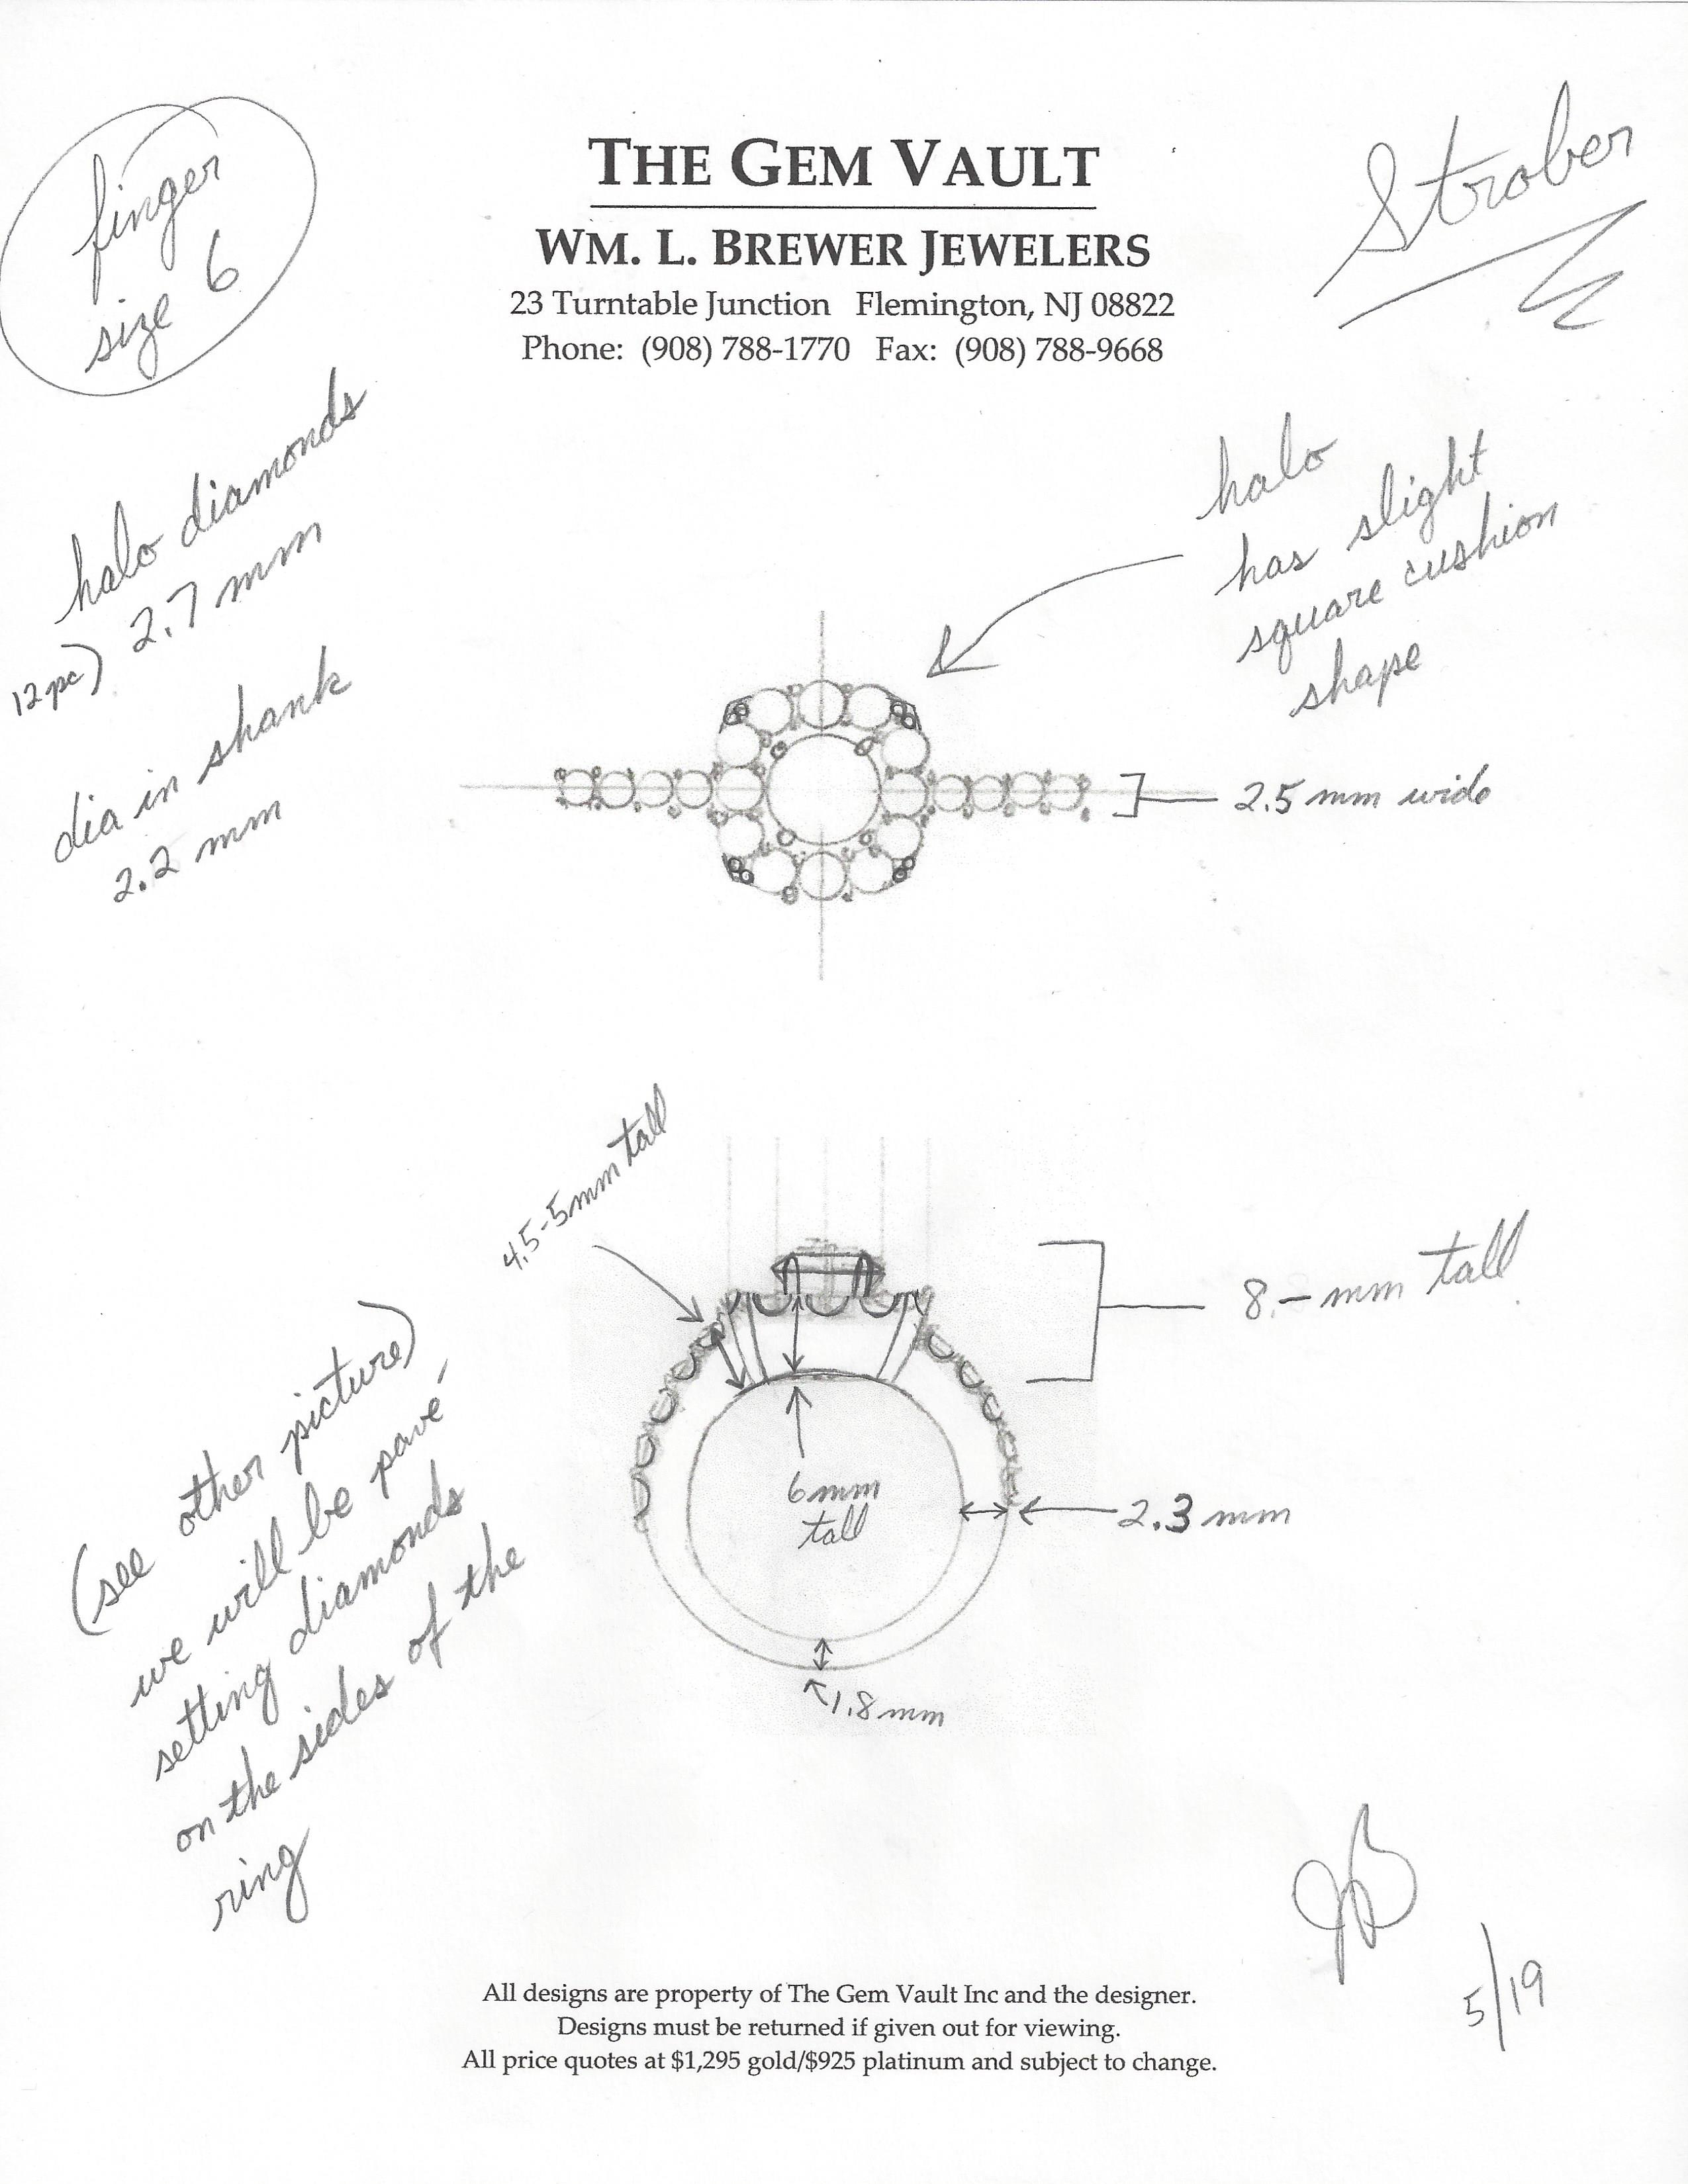 finger
size 6
THE GEM VAULT
WM. L. BREWER JEWELERS
23 Turntable Junction Flemington, NJ 08822
Phone: (908) 788-1770 Fax: (908) 788-9668
Strober
halo diamonds
12 pc) 2.7 mm
dia in shank
2.2 mm
halo
has slight
square cushion
shape
2.5 mm wide
4.5-5mm tall
8.- mm tall
6mm
tall
2.3 mm
1.8 mm
(see other picture)
we will be pavé
setting diamonds
on the sides of the
ring
JB
5/19
All designs are property of The Gem Vault Inc and the designer.
Designs must be returned if given out for viewing.
All price quotes at $1,295 gold/$925 platinum and subject to change.